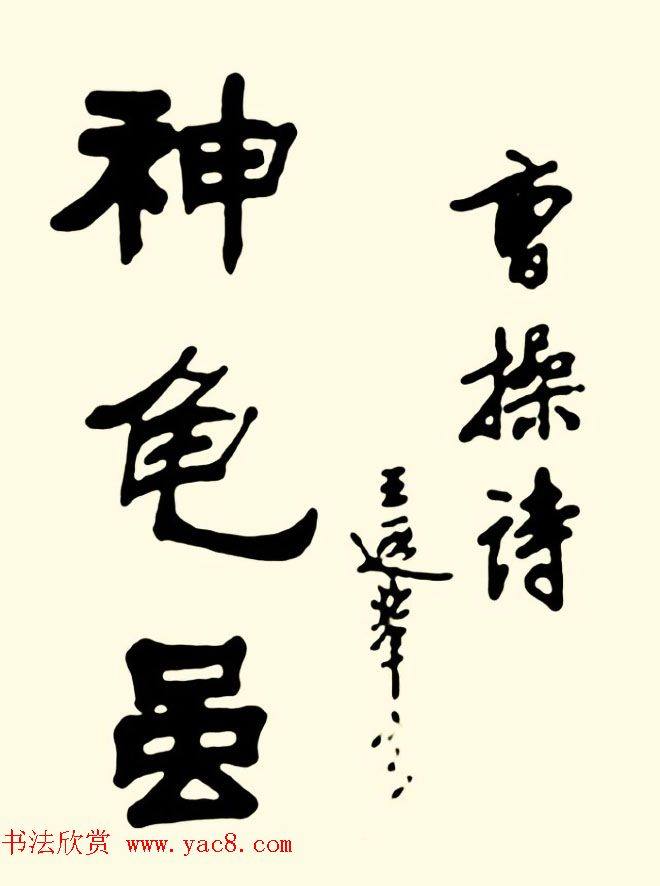 曹操诗
王遐举
神龟虽
书法欣赏 www.yac8.com